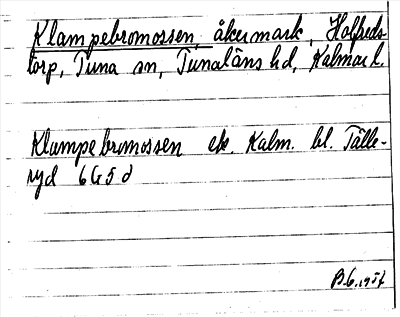 Klampebromossen, åkermark, Holfreds-
torp, Tuna sn, Tunaläns hd, Kalmar l.
Klampebromossen ek. Kalm. bl. Tälle-
ryd 6G5d